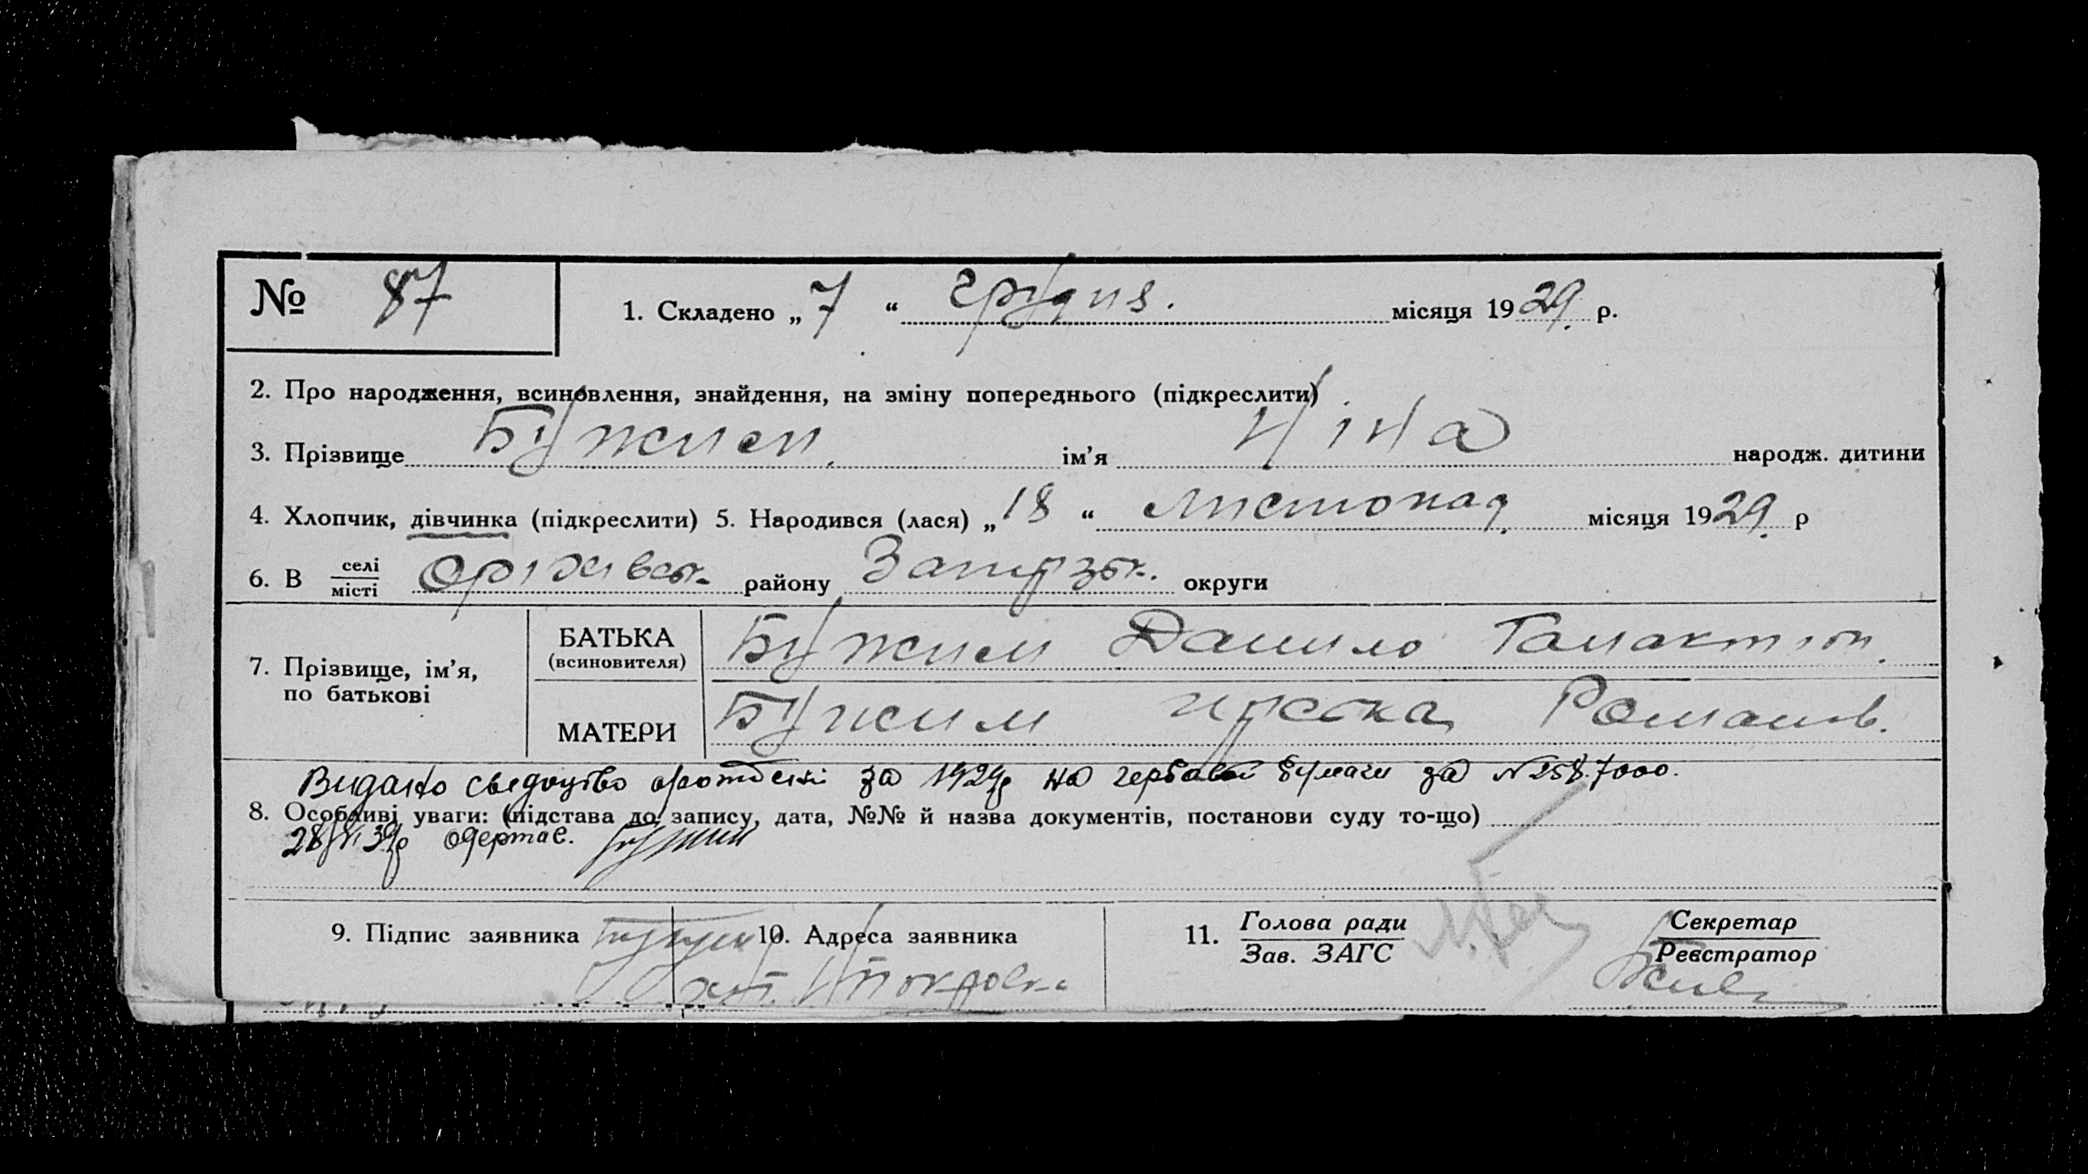 № 87
1. Складено „ 7 “ грудня. місяця 1929. р.
2. Про народження, всиновлення, знайдення, на зміну попереднього (підкреслити)
3. Прізвище Бужим. ім’я Ніна народж. дитини
4. Хлопчик, дівчинка (підкреслити) 5. Народився (лася) „ 18 “ листопад. місяця 1929. р
6. В селі місті Оріхівськ. району Запорізьк. округи
7. Прізвище, ім’я, по батькові
БАТЬКА (всиновителя) Бужим Данило Галактіон.
МАТЕРИ Бужим Романов.
Видано свідоцтво за 1929р на гербовій бумаги за № 7000.
8. Особливі уваги: (підстава до запису, дата, №№ й назва документів, постанови суду то-що)
одержав. Бужим
9. Підпис заявника Бужим 10. Адреса заявника
хут. Покровка
11. Голова ради Зав. ЗАГС
Секретар Реєстратор